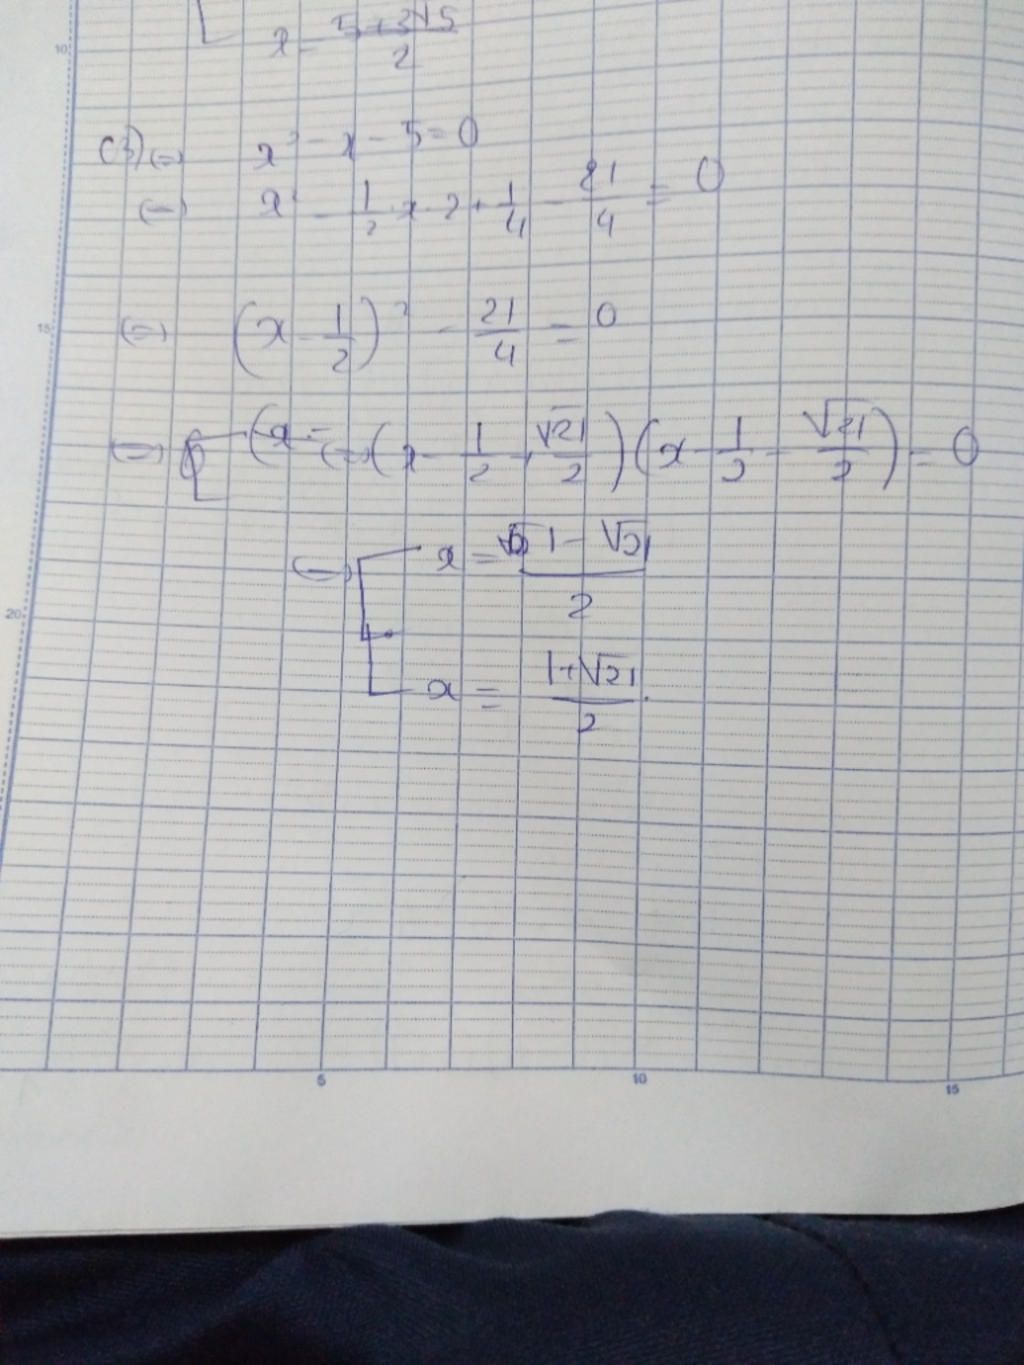 10
x = (5+3√5)/2
(3) (=) x² - x - 5 = 0
(=) x² - 1/2 · x · 2 + 1/4 - 21/4 = 0
15 (=) (x - 1/2)² - 21/4 = 0
(=) (x - (=) (x - 1/2 + √21/2)(x - 1/2 - √21/2) = 0
(=) x = (1 - √21)/2
20
x = (1+√21)/2
5 10 15